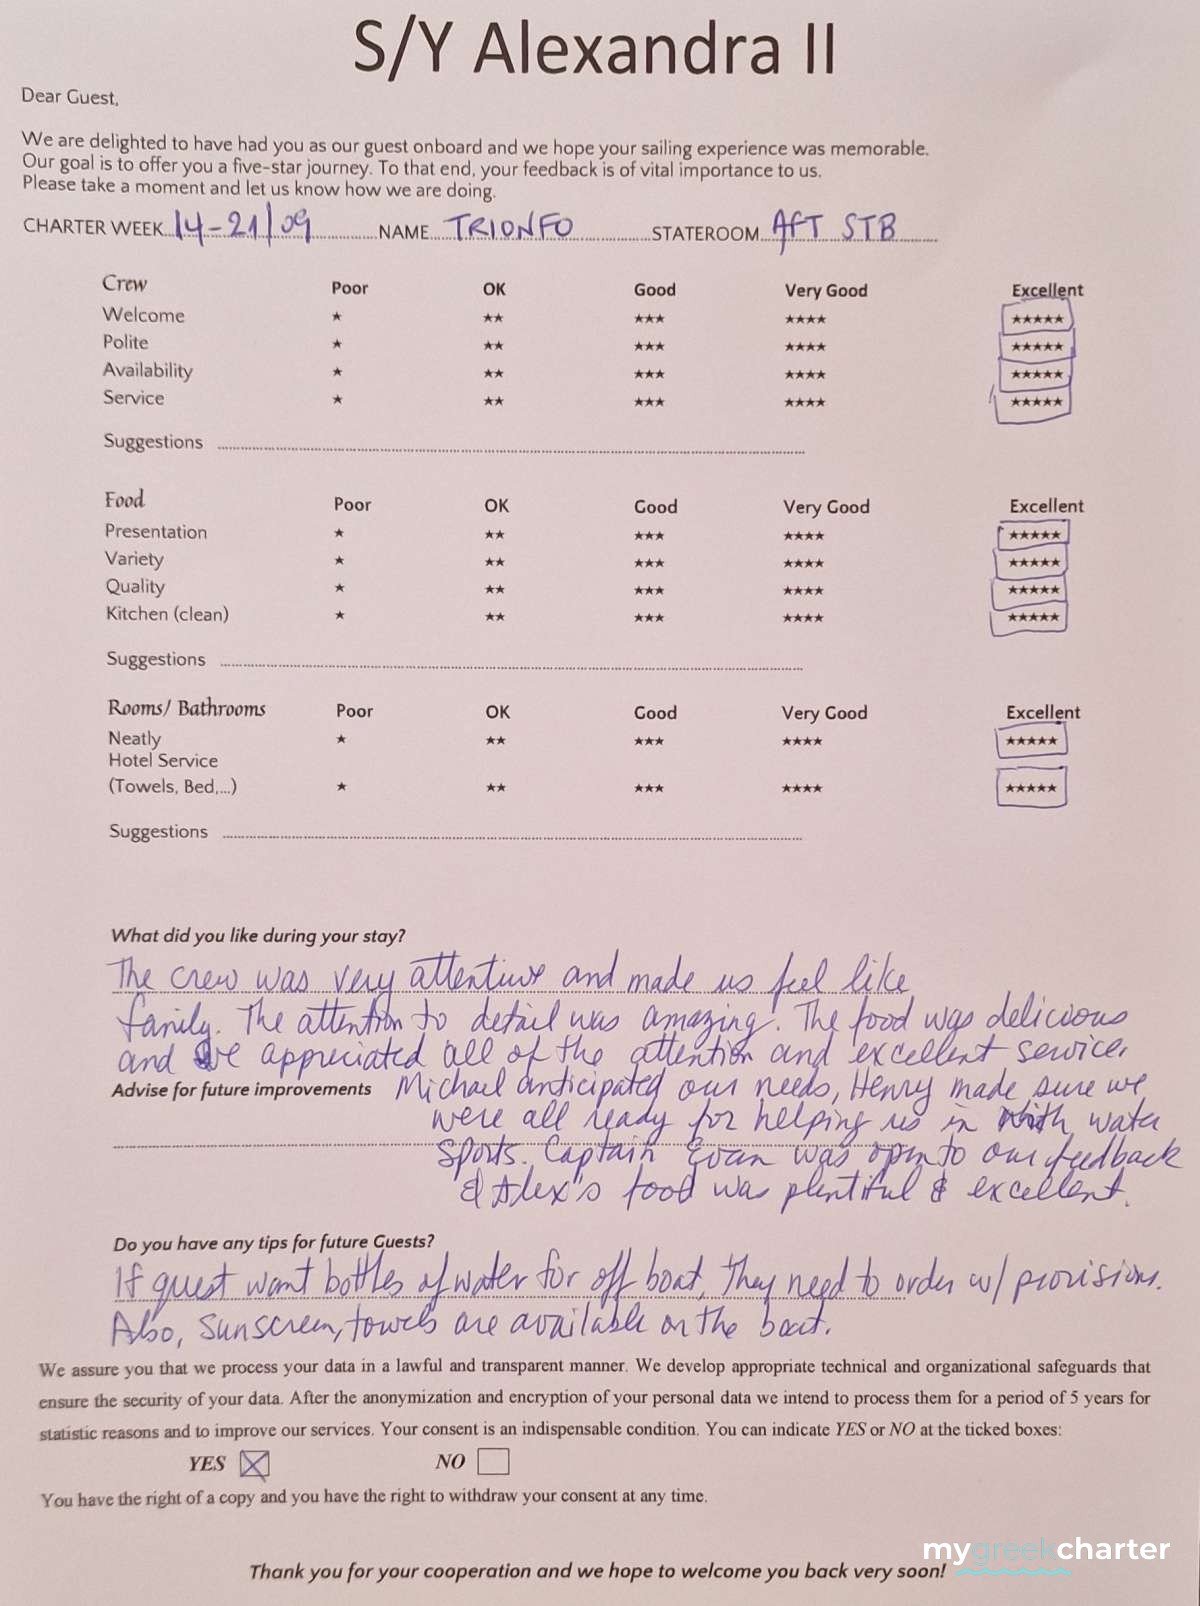 S/Y Alexandra II
Dear Guest,
We are delighted to have had you as our guest onboard and we hope your sailing experience was memorable.
Our goal is to offer you a five-star journey. To that end, your feedback is of vital importance to us.
Please take a moment and let us know how we are doing.
CHARTER WEEK 14-21/09 NAME TRIONFO STATEROOM AFT STB
Crew Poor OK Good Very Good Excellent
Welcome ★ ★★ ★★★ ★★★★ ★★★★★
Polite ★ ★★ ★★★ ★★★★ ★★★★★
Availability ★ ★★ ★★★ ★★★★ ★★★★★
Service ★ ★★ ★★★ ★★★★ ★★★★★
Suggestions
Food Poor OK Good Very Good Excellent
Presentation ★ ★★ ★★★ ★★★★ ★★★★★
Variety ★ ★★ ★★★ ★★★★ ★★★★★
Quality ★ ★★ ★★★ ★★★★ ★★★★★
Kitchen (clean) ★ ★★ ★★★ ★★★★ ★★★★★
Suggestions
Rooms/ Bathrooms Poor OK Good Very Good Excellent
Neatly ★ ★★ ★★★ ★★★★ ★★★★★
Hotel Service
(Towels, Bed,...) ★ ★★ ★★★ ★★★★ ★★★★★
Suggestions
What did you like during your stay?
The crew was very attentive and made us feel like
family. The attention to detail was amazing. The food was delicious
and We appreciated all of the attention and excellent service.
Advise for future improvements Michael anticipated our needs, Henry made sure we
were all ready for helping us in with water
sports. Captain Evan was open to our feedback
& Alex's food was plentiful & excellent.
Do you have any tips for future Guests?
If guest want bottles of water for off boat, they need to order w/ provisions.
Also, sunscreen, towels are available on the boat.
We assure you that we process your data in a lawful and transparent manner. We develop appropriate technical and organizational safeguards that
ensure the security of your data. After the anonymization and encryption of your personal data we intend to process them for a period of 5 years for
statistic reasons and to improve our services. Your consent is an indispensable condition. You can indicate YES or NO at the ticked boxes:
YES ☒ NO ☐
You have the right of a copy and you have the right to withdraw your consent at any time.
mygreekcharter
Thank you for your cooperation and we hope to welcome you back very soon!